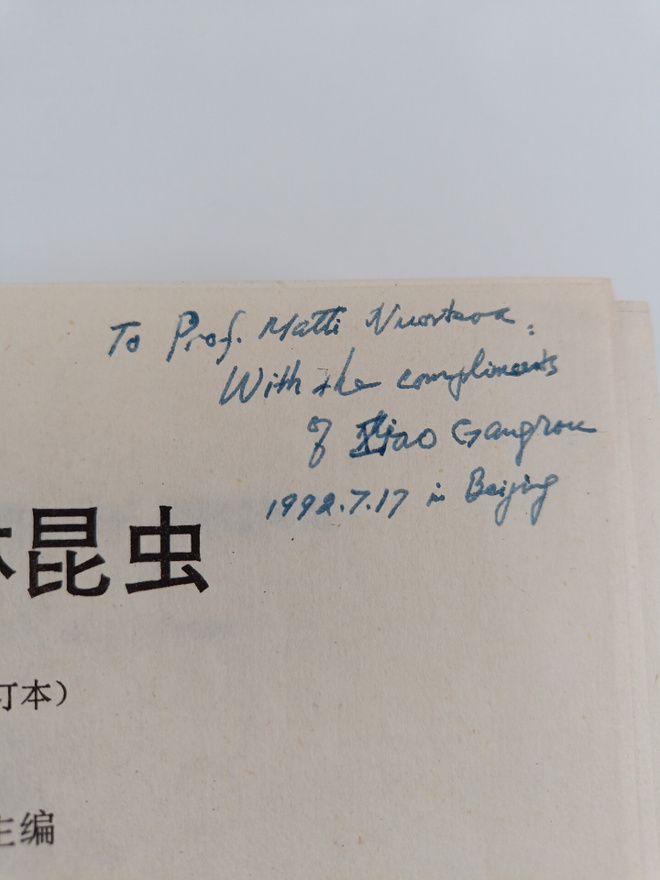 To Prof. Matti Nuorteva:
With the compliments
of Xiao Gangrou
1992.7.17 in Beijing
林昆虫
订本)
主编